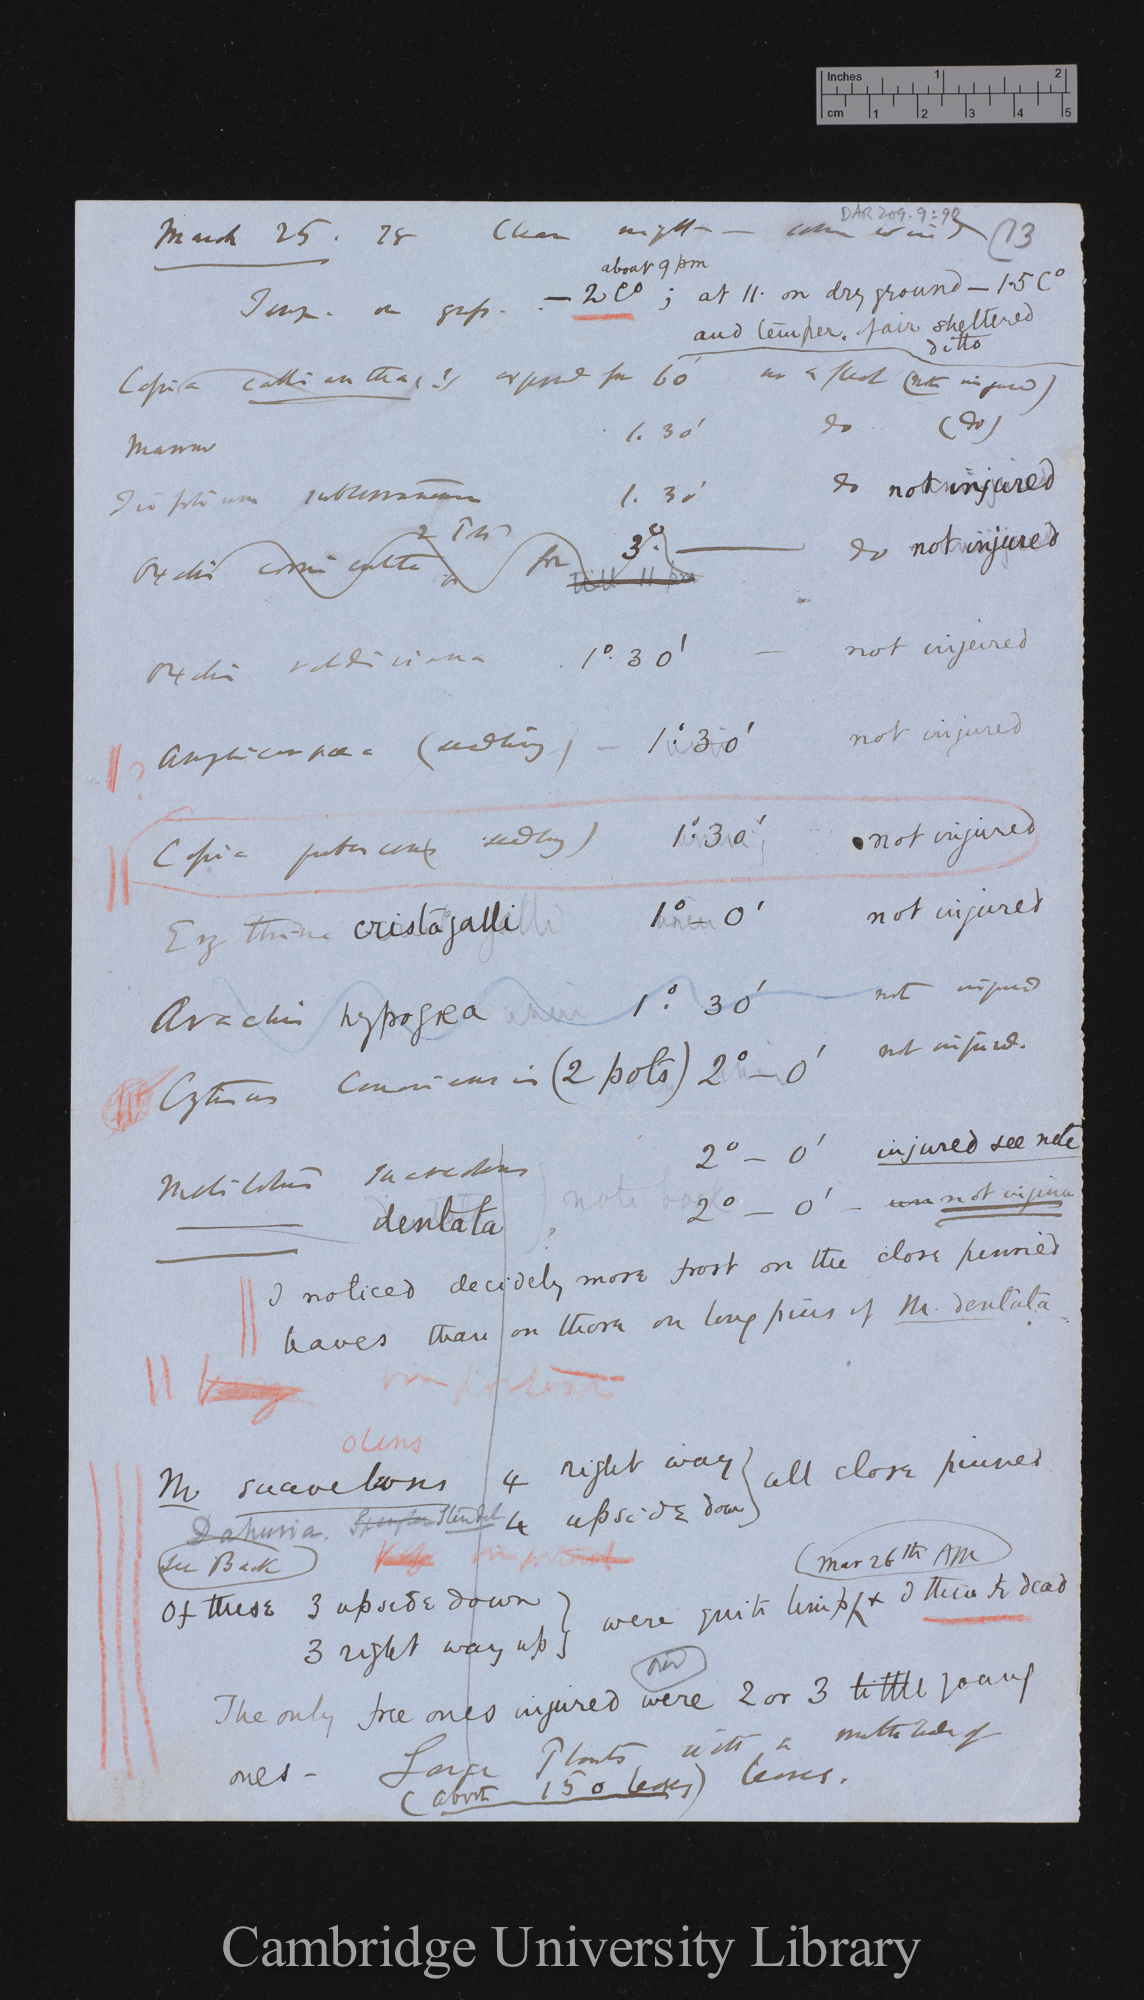 Inches 1 2
cm 1 2 3 4 5
DAR 209.9:90
March 25. 78 Clear night — wind (13
about 9 pm
Temp. on grass. — 2 C°; at 11. on dry ground — 1.5 C°
and temper. fair sheltered
ditto
exposed for 60' (not injured)
1. 30' do (do)
Trifolium subterraneum 1. 30' do not injured
Oxalis corniculata for 3° — do not injured
till 11 pm
Oxalis valdiviana 1°. 30' — not injured
Amphicarpaea (seedling) — 1°. 30' not injured
Cassia pubescens (seedling) 1°. 30' not injured
Erythrina cristagalli 1° — 0' not injured
Arachis hypogea 1°. 30' not injured
Cytisus (2 pots) 2° — 0' not injured.
Melilotus suaveolens 2° — 0' injured see note
dentata 2° — 0' — not injured
note book
I noticed decidely more frost on the close pinned
leaves than on those on long pins of M. dentata
Very important
olens
M suaveolens 4 right way } all close pinned
Dahuria. 4 upside down
See Back Very important (Mar 26th AM)
Of these 3 upside down } were quite limp & I think dead
3 right way up
The only free ones injured were 2 or 3 little young
ones — Large Plants with a multitude of
(about 150 leaves) leaves.
Cambridge University Library